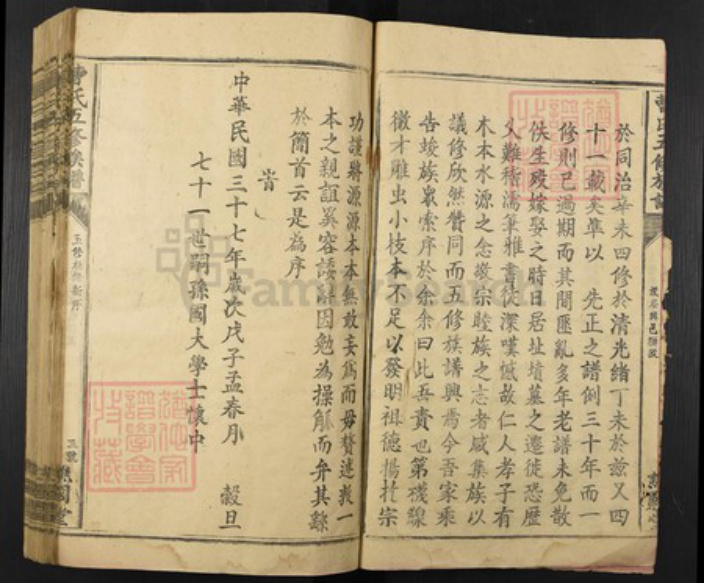 於同治辛未四修於清光緒丁未於茲又四
十一載矣準以 先正之譜例三十年而一
修則已過期而其間匪亂多年老譜未免散
佚生歿嫁娶之時日居址墳墓之遷徙恐歷
久難稽濡筆雅書從深嘆憾故仁人孝子有
木本水源之念敬宗睦族之志者咸集族以
議修欣然贊同而五修族譜興焉今吾家乘
告竣族眾索序於余余曰此吾責也第襪線
微才雕虫小技本不足以發明祖德揚扢宗
功謹將源源本本無敢妄為而毋贅述我一
本之親誼異容諉辭因勉為操觚而弁其緣
於簡首云是為序
旹
中華民國三十七年歲次戊子孟春月 穀旦
七十一世嗣孫國大學士懷中
曹氏五修族譜
五修族譜新序
五號
樂園堂
曹氏五修族譜
FamilySearch